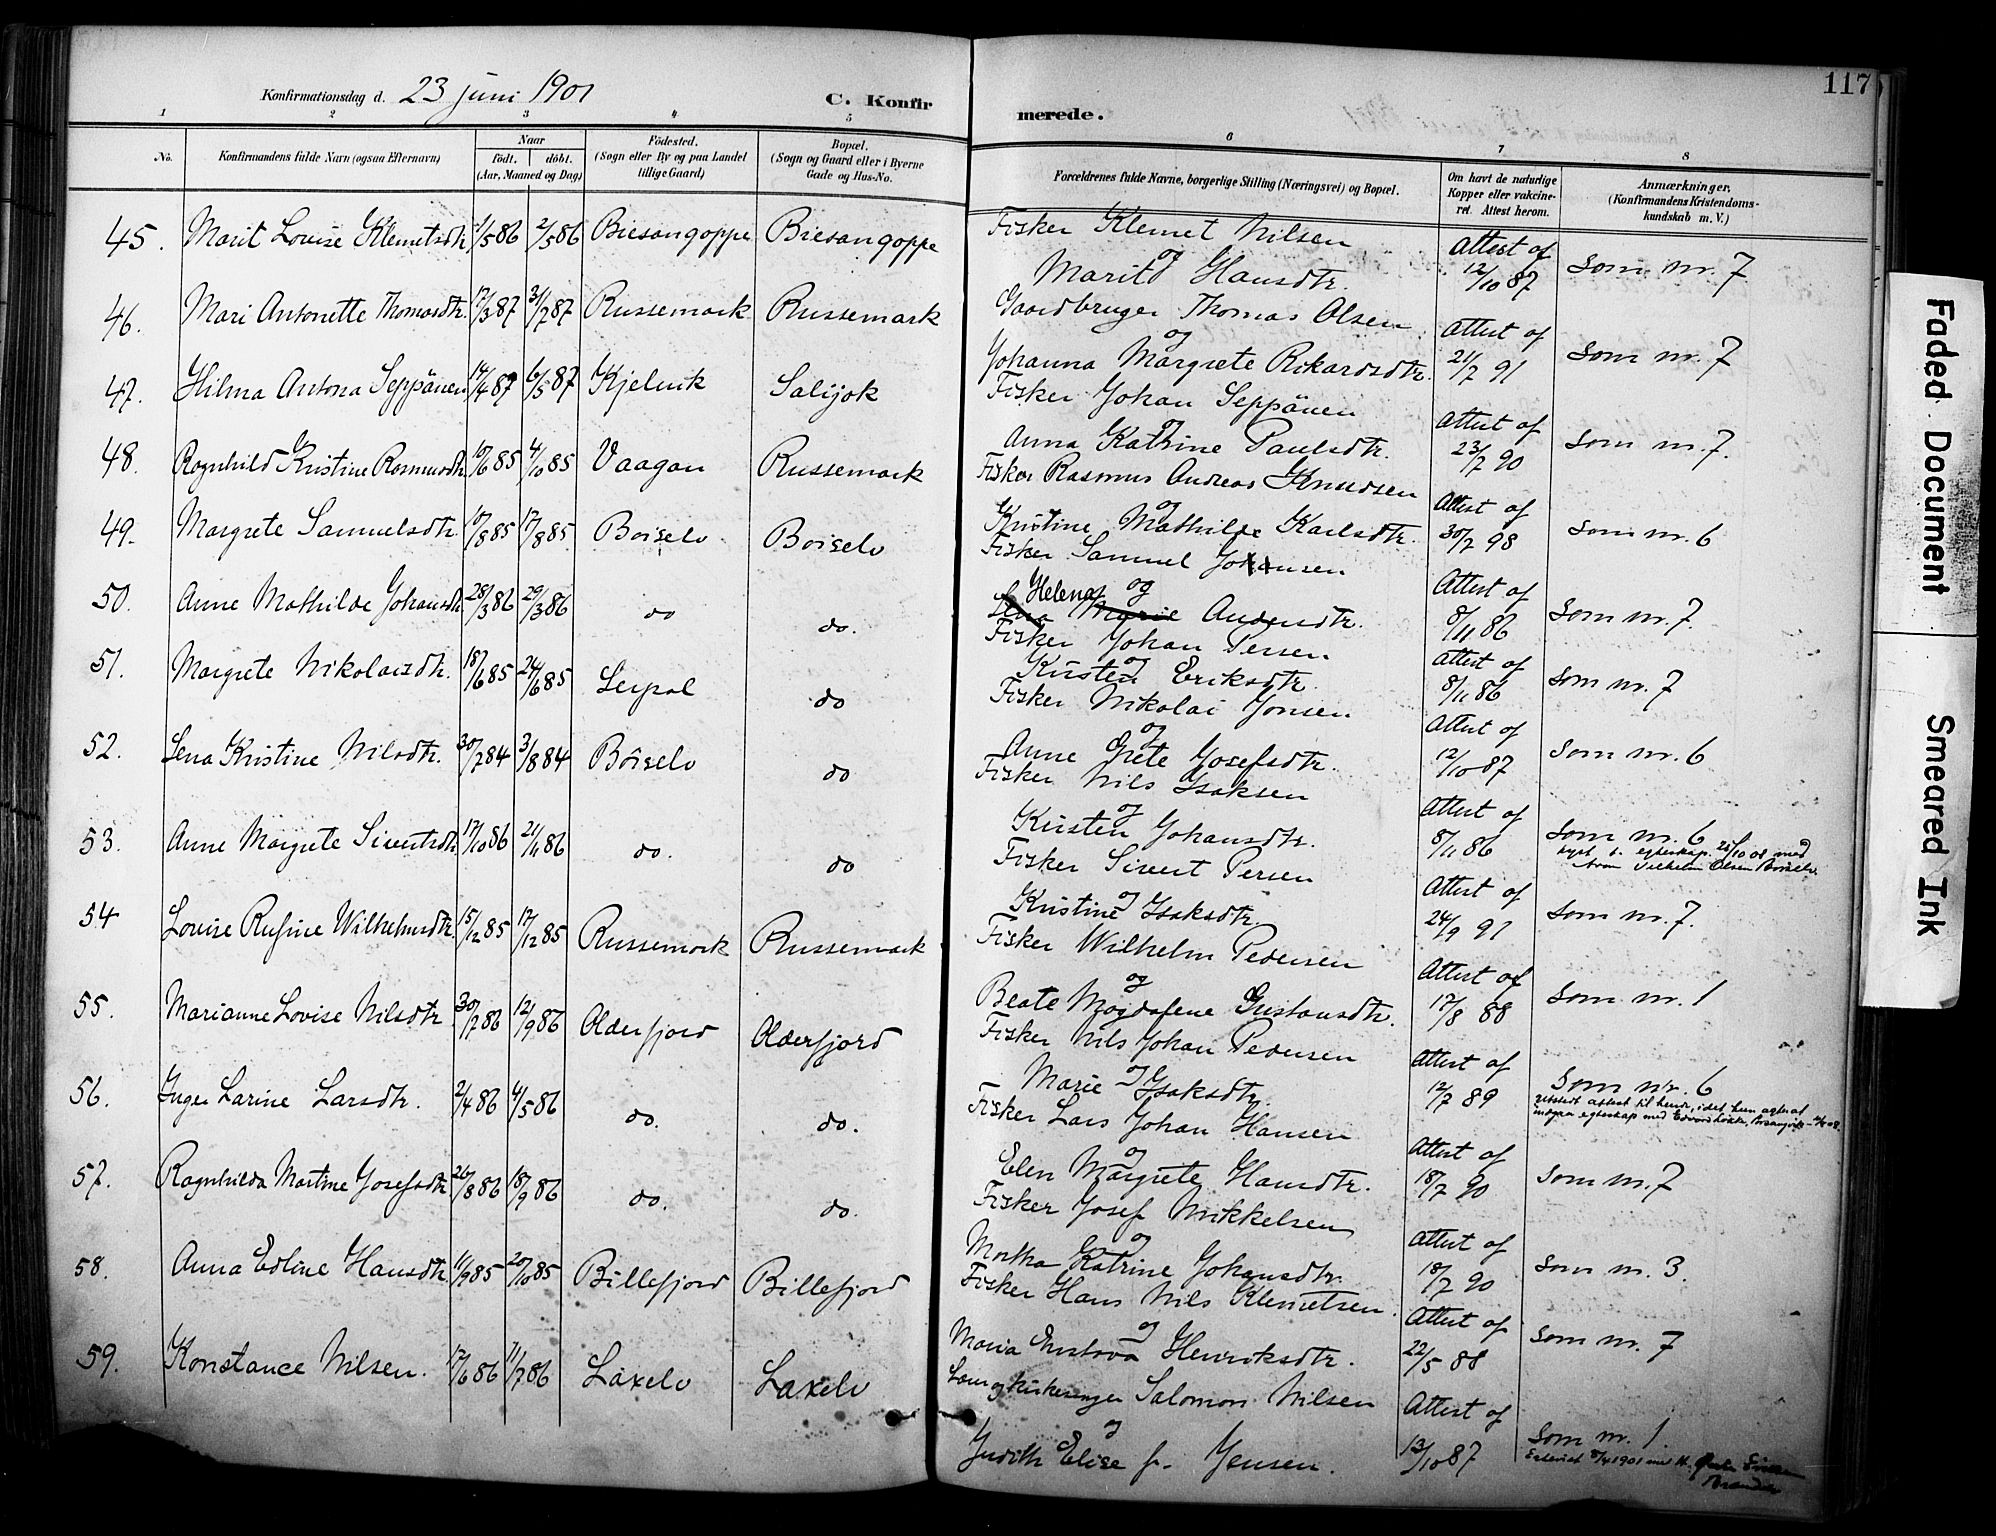 Konfirmationsdag d. 23 juni 1901
C. Konfirmerede.
117
1 2 3 4 5 6 7 8
No.
Konfirmandens fulde Navn (ogsaa Efternavn)
Naar
födt. döbt.
(Aar, Maaned og Dag)
Födested.
(Sogn eller By og paa Landet
tillige Gaard)
Bopæl.
(Sogn og Gaard eller i Byerne
Gade og Hus-No.
Forældrenes fulde Navne, borgerlige Stilling (Næringsvei) og Bopæl.
Om havt de naturlige
Kopper eller vakcine-
ret. Attest herom.
Anmærkninger.
(Konfirmandens Kristendoms-
kundskab m. V.)
45. Marit Lovise Klemetsdtr 1/5 86 2/5 86 Biesangoppe Biesangoppe
Fisker Klemet Nilsen
og
Marit Hansdtr.
Attest af
12/10 87
Som nr. 7
46. Mari Antonette Thomasdtr. 17/3 87 31/7 87 Russemark Russemark
Gaardbruger Thomas Olsen
og
Johanna Margrete Rikardsdtr.
Attest af
21/7 91
Som nr. 7
47. Hilma Antona Seppänen 14/4 87 6/5 87 Kjelvik Salijok
Fisker Johan Seppänen
og
Anna Katrine Paulsdtr.
Attest af
23/7 90
Som nr. 7.
48. Ragnhild Kristine Rasmusdtr 10/6 85 4/10 85 Vaagan Russemark
Fisker Rasmus Andreas Knudsen
og
Kristine Mathilde Karlsdtr.
Attest af
30/7 98
Som nr. 6
49. Margrete Samuelsdtr. 10/8 85 17/8 85 Börselv Börselv
Fisker Samuel Johansen
Helena og
Lena Marie Andersdtr.
Attest af
8/11 86
Som nr. 7.
50. Anne Mathilde Johansdtr 28/3 86 29/3 86 do do.
Fisker Johan Persen
og
Kristen Eriksdtr.
Attest af
8/11 86
Som nr. 7
51. Margrete Nikolaisdtr. 18/6 85 24/6 85 Leirpol do
Fisker Nikolai Jonsen
og
Anne Grete Josefsdtr.
Attest af
12/10 87
Som nr. 6
52. Lena Kristine Nilsdtr. 30/7 84 3/8 84 Börselv do
Fisker Nils Isaksen
og
Kristen Johansdtr.
Attest af
8/11 86
Som nr. 6
53. Anne Margrete Sivertsdtr. 17/10 86 21/11 86 do. do
Fisker Sivert Persen
og
Kristine Isaksdtr.
lyst t. egteskap
med
Vilhelm Olsen Börselv.
Attest af
24/9 91
Som nr. 7.
54 Lovise Rufine Wilhelmsdtr. 15/12 85 17/12 85 Russemark Russemark
Fisker Wilhelm Pedersen
og
Beate Magdalene Gustavsdtr.
Attest af
17/8 88
Som nr. 1
55. Marianne Lovise Nilsdtr. 30/7 86 12/9 86 Olderfjord Olderfjord
Fisker Nils Johan Pedersen
og
Marie Isaksdtr.
Attest af
12/7 89
Som nr. 6
utstedt attest til hende, idet hun agter at
indgaa egteskap med
56. Inger Larine Larsdtr. 2/4 86 4/5 86 do. do.
Fisker Lars Johan Hansen
og
Elen Margrete Hansdtr.
Attest af
18/7 90
Som nr. 7
57. Ragnhilda Martine Josefsdtr 26/8 86 18/9 86 do. do.
Fisker Josef Mikkelsen
og
Martha Katrine Johansdtr.
Attest af
18/7 90
Som nr. 3.
58. Anna Edline Hansdtr. 11/9 85 20/10 85 Billefjord Billefjord
Fisker Hans Nils Klemetsen.
og
Maria Gustava Henriksdtr.
Attest af
22/5 88
Som nr. 7
59. Konstance Nilsen. 17/6 86 11/7 86 Laxelv Laxelv
Læn og kirkesanger Salomon Nilsen
og
Judith Elise f. Jensen.
Attest af
13/10 87
Som nr. 1.
Faded Document Smeared Ink